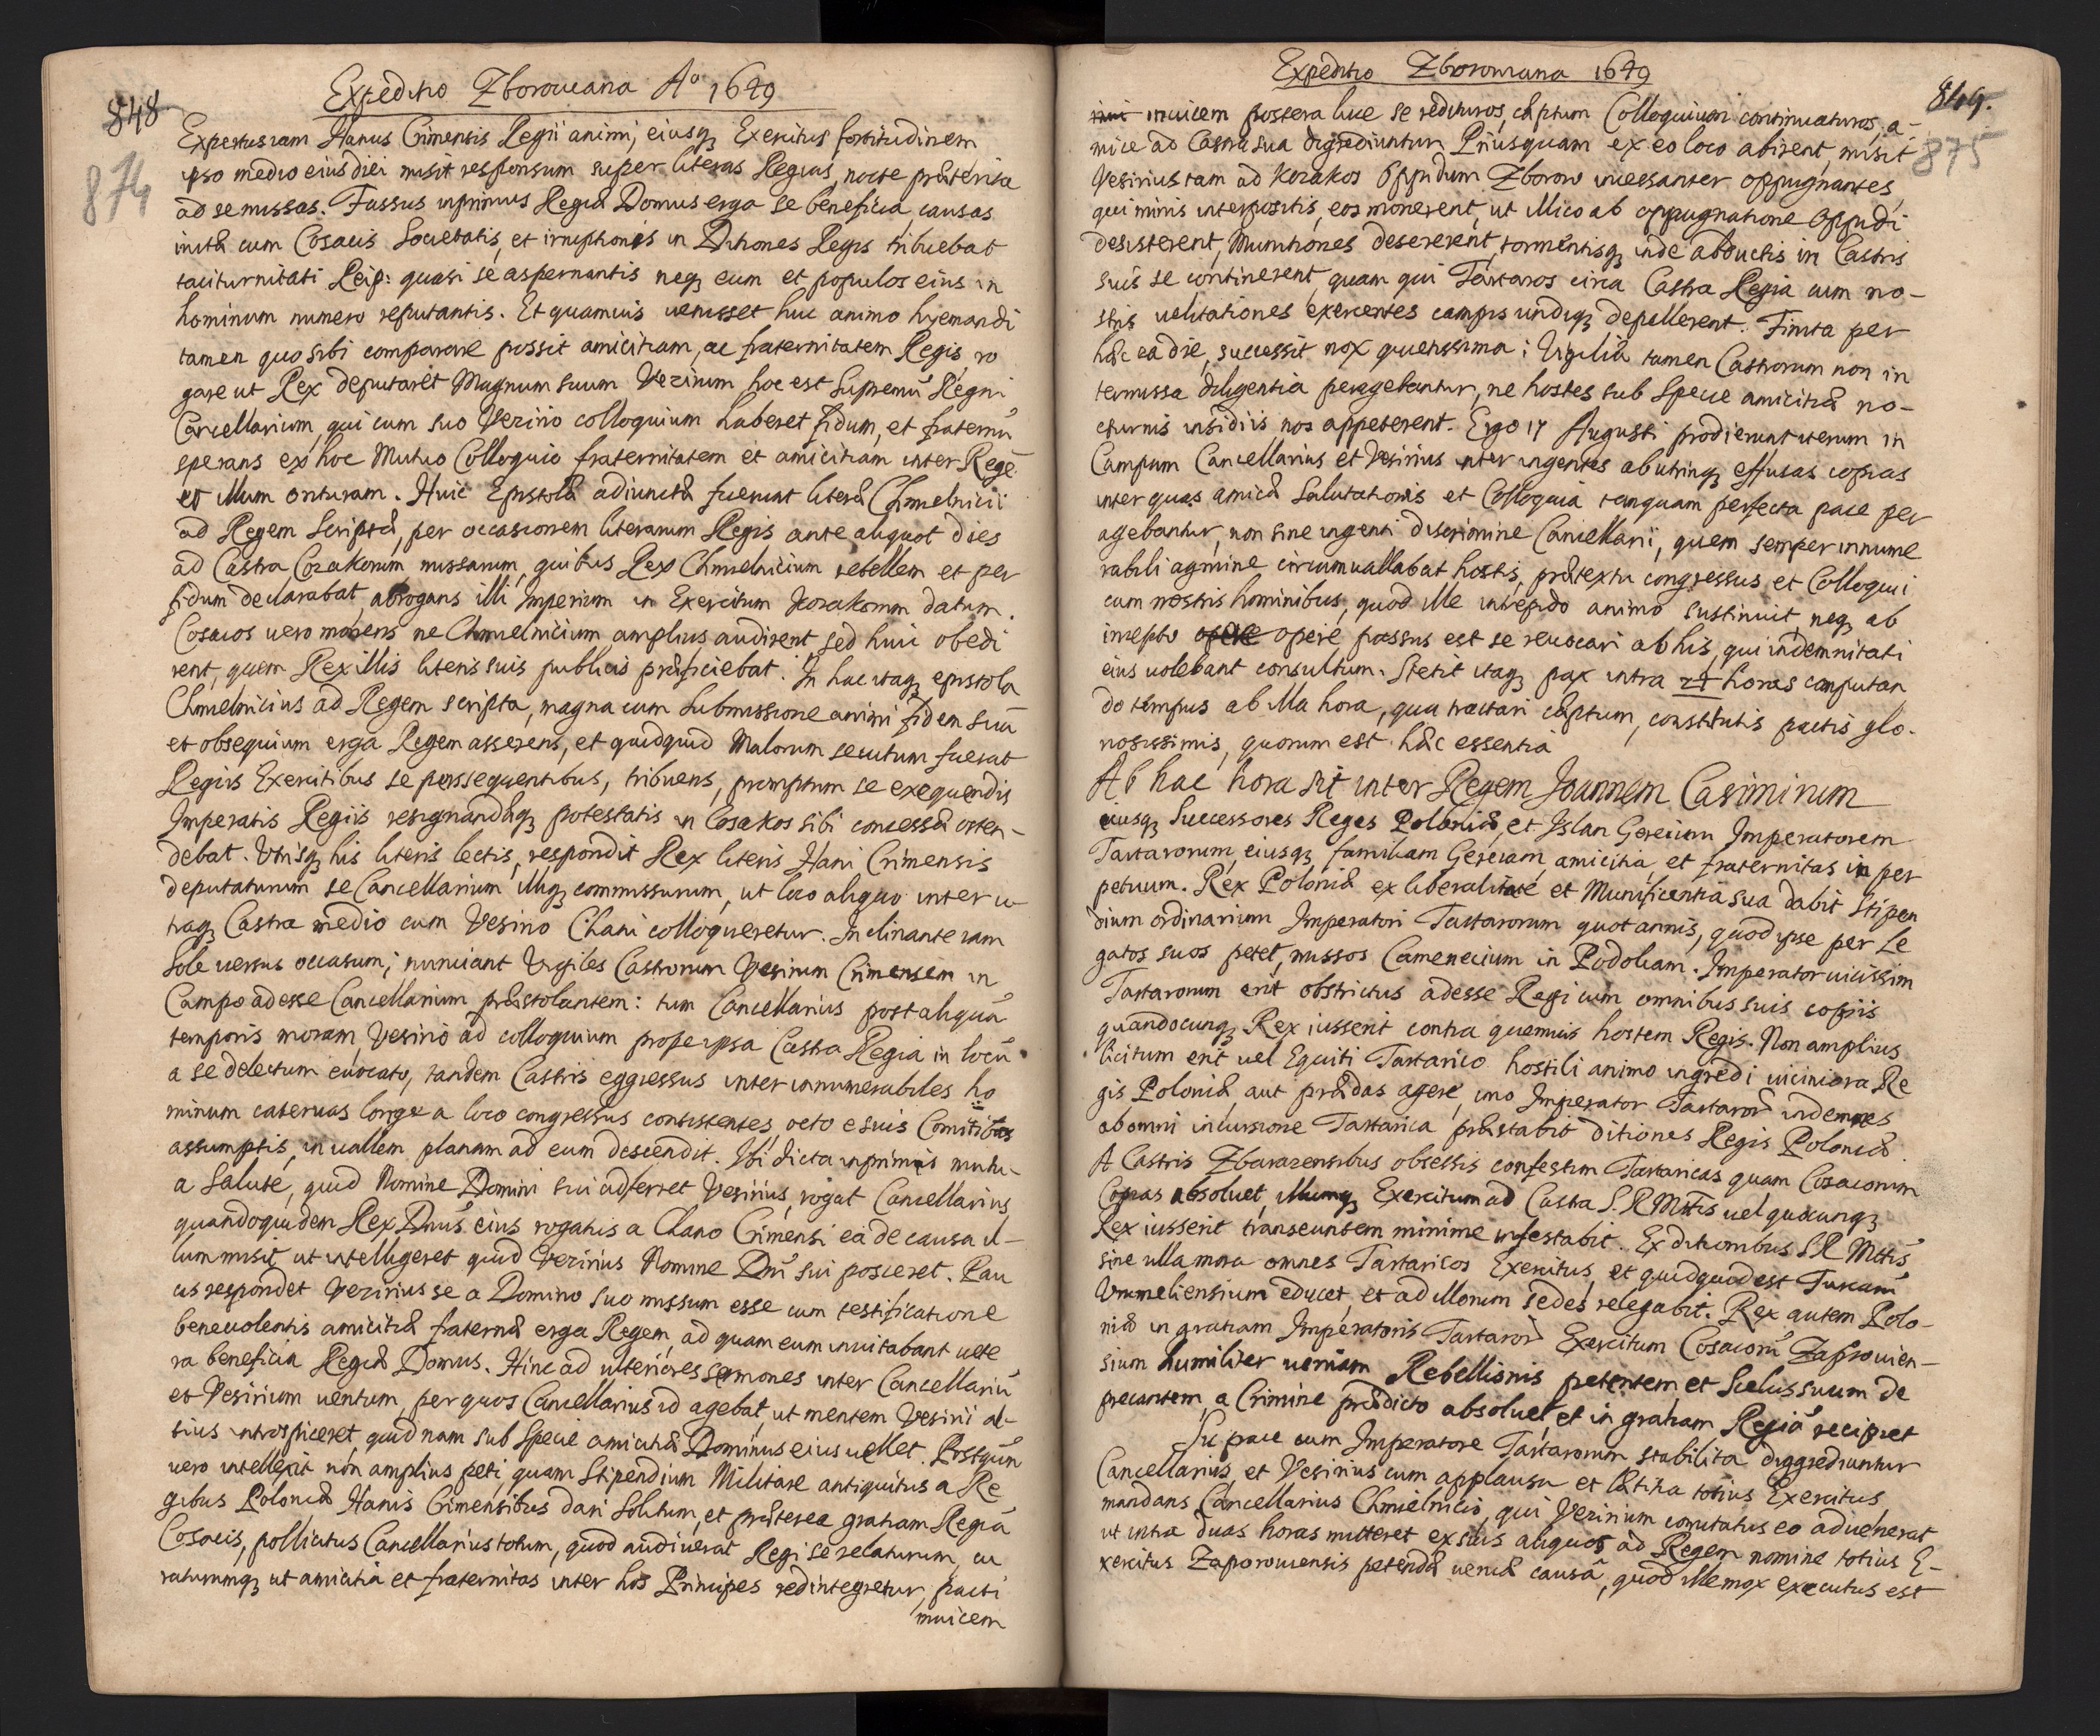 848
Expeditio Zborouiana Aº 1649
874
Expertus iam Hanus Crimensis Regii animi, eiusq₃ Exercitus fortitudinem
ipso medio eius diei misit responsum super literas Regias, nocte præterita
ad se missas. Fassus inprimis Regiæ Domus erga se beneficia, causas
initæ cum Cosacis Societatis, et irruptionis in Ditiones Regis tribuebat
taciturnitati Reip: quasi se aspernantis neq₃ eum et populos eius in
hominum numero reputantis. Et quamuis uenisset huc animo hyemandi
tamen quo sibi comparare possit amicitiam, ac fraternitatem Regis, ro
gare ut Rex deputaret Magnum suum Vezirium hoc est Supremū Regni
Cancellarium, qui cum suo Verizio colloquium haberet fidum, et fraternū
sperans ex hoc Mutuo Colloquio fraternitatem et amicitiam inter Regē
et illum orituram. Huic Epistolæ adiunctæ fuerunt literæ Chmelnicii
ad Regem Scriptæ, per occasionem literarum Regis ante aliquot dies
ad Castra Cozakorum missarum, quibus Rex Chmielnicium rebellem et per
fidum declarabat, abrogans illi Imperium in Exercitum Kozakorum datum.
Cosacos uero monens ne Chmielnicium amplius audirent sed huic obedi
rent, quem Rex illis literis suis publicis præficiebat. In hac itaq₃ epistola
Chmielnicius ad Regem scripta, magna cum submissione animi fidem suā
et obsequium erga Regem asserens, et quidquid Malorum secutum fuerat
Regiis Exercitibus se persequentibus, tribuens, promptum se exequendis
Imperatis Regiis resignandæq₃ potestatis in Cosakos sibi concessæ osten-
debat. Vtrisq₃ his literis lectis, respondit Rex literis Hani Crimensis
deputaturum se Cancellarium illiq₃ commissurum, ut loco aliquo inter u-
traq₃ Castra medio cum Vesirio Chani colloqueretur. Inclinante iam
Sole uersus occasum; nunciant Vigiles Castrorum Vesirium Crimensem in
Campo adesse Cancellarium præstolantem: tum Cancellarius post aliquā
temporis moram, Vesirio ad colloquium prope ipsa Castra Regia in locū
a se delectum euocato, tandem Castris eggressus inter innumerabiles ho
minum cateruas longe a loco congressus consistentes, octo e suis Comitibus
assumptis, in uallem planam ad eum descendit. Ibi dicta inprimis mutu-
a Salute, quid Nomine Domini sui adferret Vesirius, rogat Cancellarius,
quandoquidem Rex Dnūs eius rogatus a Chano Crimensi ea de causa il-
lum misit, ut intelligeret quid Vezirius Nomine Dnī sui posceret. Pau
cis respondet Vezirius se a Domino suo missum esse cum testificatione
beneuolentis amicitiæ fraternæ erga Regem, ad quam eum inuitabant uete
ra beneficia Regiæ Domus. Hinc ad ulteriores sermones inter Cancellariū
et Vesirium uentum, per quos Cancellarius id agebat, ut mentem Vesirii al-
tius introspiceret, quidnam sub Specie amicitiæ Dominus eius uellet. Postquā
uero intellexit non amplius peti, quam Stipendium Militare antiquitus a Re
gibus Poloniæ Hanis Crimensibus dari solitum, et præterea gratiam Regiā
Cosacis, pollicitus Cancellarius totum, quod audiuerat Regi se relaturum, cu
raturumq₃ ut amicitia et fraternitas inter hos Principes redintegretur, pacti
inuicem
Expeditio Zborouiana 1649
849.
875
inui inuicem postera luce se redituros, cæptum Colloquium continuaturos, a-
mice ad Castra sua digrediuntur. Priusquam ex eo loco abirent, misit
Vesirius tam ad Kozakos Oppidum Zborow incessanter oppugnantes,
qui minis interpositis, eos monerent, ut illico ab oppugnatione Oppidi
desisterent, Munitiones desererent, tormentisq₃ inde abductis in Castris
suis se continerent, quam qui Tartaros circa Castra Regia cum no-
stris uelitationes exercentes campis undiq₃ depellerent. Finita per
hæc ea die, successit nox quietissima: Vigiliæ tamen Castrorum non in
termissa diligentia peragebantur, ne hostes sub Specie amicitiæ no-
cturnis insidiis nos appeterent. Ergo 17 Augusti prodierunt iterum in
Campum Cancellarius et Vesirius inter ingentes ab utrinq₃ effusas copias
inter quas amicæ Salutationis et Colloquia tanquam perfecta pace per
agebantur, non sine ingenti discrimine Cancellarii, quem semper innume
rabili agmine circumuallabat hostis, prætextu congressus et Colloquii
cum nostris hominibus, quod ille intrepido animo sustinuit, neq₃ ab
incepto opere opere passus est se reuocari ab his, qui indemnitati
eius uolebant consultum. Stetit itaq₃ pax intra 24 horas computan
do tempus ab illa hora, qua tractari cæptum, constitutis pactis glo-
riosissimis, quorum est hæc essentia
Ab hac hora sit inter Regem Joannem Casimirum
eiusq₃ Successores Reges Poloniæ, et Islan Gereium Imperatorem
Tartarorum, eiusq₃ familiam Gereiam, amicitia, et fraternitas in per
petuum. Rex Poloniæ ex liberalitate et Munificentia sua dabit Stipen
dium ordinarium Imperatori Tartarorum quotannis, quod ipse per Le
gatos suos petet, missos Camenecium in Podoliam. Imperator uicissim
Tartarorum erit obstrictus adesse Regi cum omnibus suis copiis
quandocunq₃ Rex iusserit contra quemuis hostem Regis. Non amplius
licitum erit uel Equiti Tartarico hostili animo ingredi uiciniora Re
gis Poloniæ, aut prædas agere, imo Imperator Tartarorū indemnes
ab omni incursione Tartarica præstabit ditiones Regis Poloniæ.
A Castris Zbarazensibus obsessis confestim Tartaricas quam Cosacorum
Copias absoluet, illumq₃ Exercitum ad Castra S.R. Mttis uel quocunq₃
Rex iusserit transeuntem minime infestabit. Ex ditionibus S R Mttis
sine ulla mora omnes Tartaricos Exercitus, et quidquid est Turcarū
Vrumeliensium educet, et ad illorum sedes relegabit. Rex autem Polo-
niæ in gratiam Imperatoris Tartarorū Exercitum Cosacorū Zaporouien-
sium humiliter ueniam Rebellionis petentem et Scelus suum de
precantem, a Crimine prædicto absoluet, et in gratiam Regiā recipiet
Sic pace cum Imperatore Tartarorum stabilita diggrediuntur
Cancellarius, et Vesirius cum applausu et lætitia totius Exercitus,
mandans Cancellarius Chmielnicio, qui Vezirium comitatus eo aduenerat
ut intra duas horas mitteret ex suis aliquos ad Regem nomine totius E-
xercitus Zaporouiensis petendæ ueniæ causâ, quod ille mox executus est